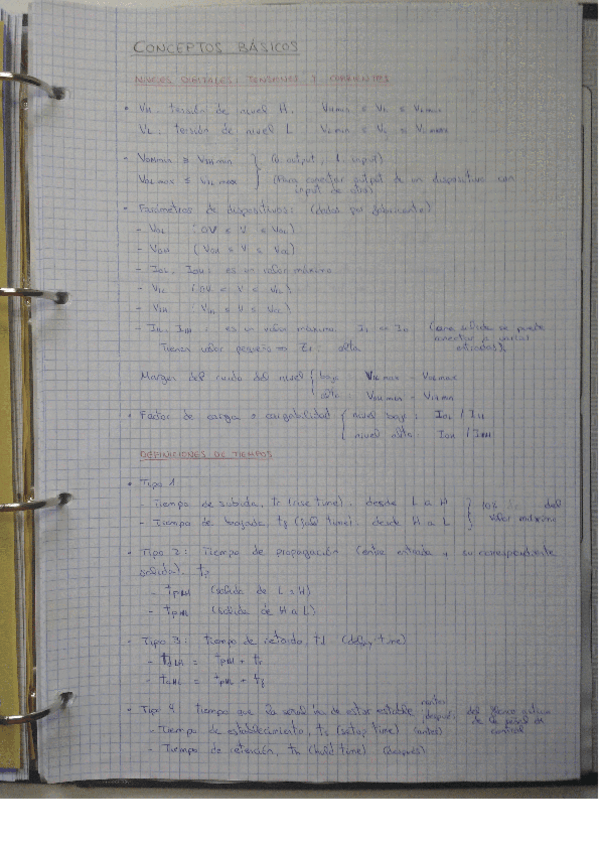 CONCEPTOS BÁSICOS
NIVELES DIGITALES: TENSIONES Y CORRIENTES
• VH. tensión de nivel H. VHmin ≤ VH ≤ VHmax
VL. tensión de nivel L VLmin ≤ VL ≤ VLmax
• VOHmin ≥ VIHmin } (O: output, I: input)
VOLmax ≤ VILmax } (Para conectar output de un dispositivo con
input de otro)
• Parámetros de dispositivos: (dados por fabricante)
- VOL (0V ≤ V ≤ VOL)
- VOH (VOH ≤ V ≤ VCC)
- IOL, IOH: es un valor máximo
- VIL (0V ≤ V ≤ VIL)
- VIH (VIH ≤ V ≤ VCC)
- IIL, IIH: es un valor máximo. (una salida se puede
conectar a varias
entradas)
Tienen valor pequeño ⇒ ZI: alta
Margen del ruido del nivel { bajo: VILmax - VOLmax
alto: VOHmin - VIHmin
• Factor de carga o cargabilidad { nivel bajo: IOL / IIL
nivel alto: IOH / IIH
DEFINICIONES DE TIEMPOS
• Tipo 1
- Tiempo de subida, tr (rise time). desde L a H } 10% del
- Tiempo de bajada, tf (fall time). desde H a L } valor máximo
• Tipo 2: Tiempo de propagación (entre entrada y su correspondiente
salida). tp
- tpLH (salida de L a H)
- tpHL (salida de H a L)
• Tipo 3: tiempo de retardo, td (delay time)
- tdLH = tpLH + tr
- tdHL = tpHL + tf
• Tipo 4: tiempo que la señal ha de estar estable antes/después del flanco activo
de la señal de
control
- Tiempo de establecimiento, ts (setup time) (antes)
- Tiempo de retención, th (hold time) (después)